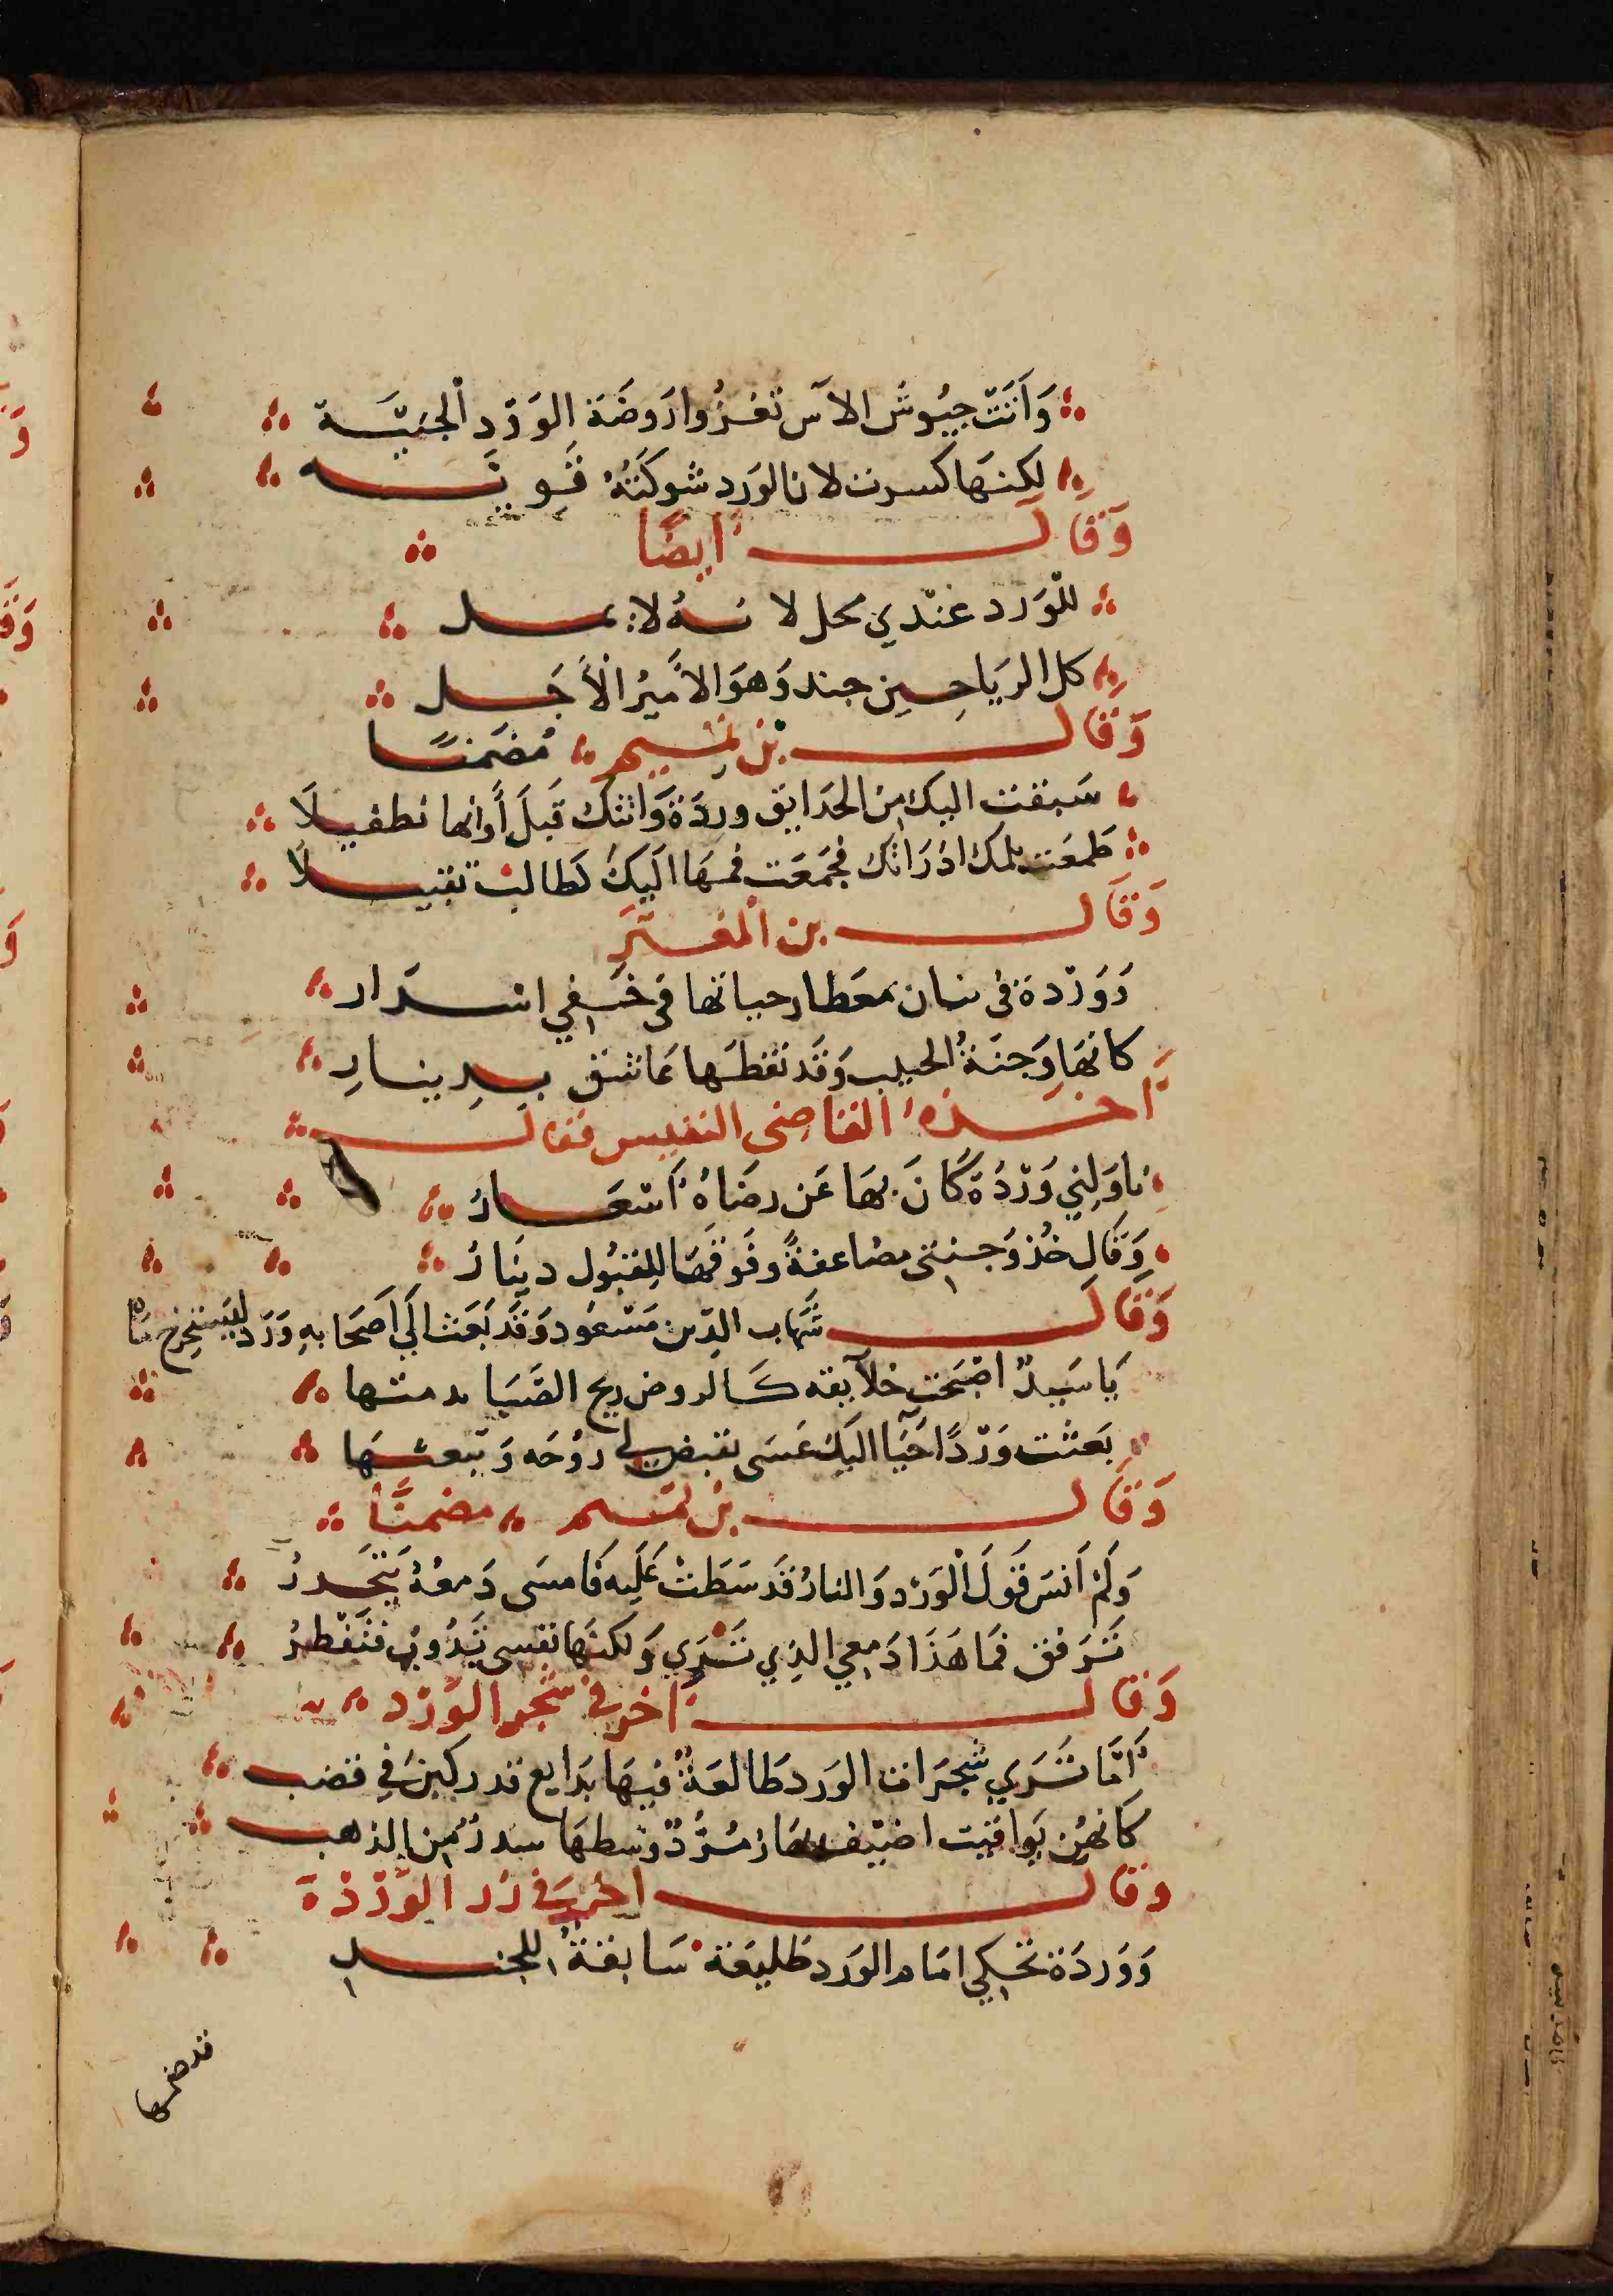 وَاَتَتْ جيُوش الآس تغزُوا رَوضَة الوَرْد الجَنيَّة
لكنهَا كسرت لان الورَد شوكَتهُ قَويَّه
وَقَالَ ايضًا
للوَرَد عنْدي محل لانهُ لا يمل
كل الريَاحِين جند وَهوَ الاَميُر الاَجَل
وَقَالَ بن تميم مُضَمنًا
سَبقت اليك من الحدَايق وردَة وَاتتك قبلَ أَوانها تطفيلَا
طمعَت بلثمك اذ رَاتك فجمَعَت فمهَا اليكَ كطالب تقبيلَا
وَقَالَ بن المعتز
وَوَرْدة في بنان معطار حيا بها في خَفِي اسرَار
كانهَا وَجنَة الحبيب وَقَد نقطهَا عَاشق بدِينارِ
اخذهُ القاضى النفيس فقالَ
ناوَلِني وَرْدُة كَانَ بهَا عَن رضَاهُ اَشعَارُ
وَقَال خُذ وَجنتى مضاعفةً وفَوقهَا للِقبُول دينَارُ
وَقَالَ شَهاب الدّين مَسْعُود وَقَد بَعَث الَي اَصحَابهِ وَرَد ليَستخِرج مَاه
يَا سَيدً اضْحَت خلآيقه كالروض ريح الصَّبَا يدمثها
بَعثت وَرْدًا حَيَا اليكَ عَسَى تقبض لي روُحَه وَتبعثهَا
وَقَالَ بن تميم مضمنًا
وَلَم اَنسَ قَولَ الْوَرْد وَالنارُ قَد سَطَتْ عَلَيه فَامسَى دَمعُهُ يَتحَدرُ
تَرَفق فمَا هَذَا دَمعي الذِي تَرَي وَلكنهَا نفسى تَذُوبُ فتَقْطرُ
وَقَالَ اخر في شجر الوَرْد
اَمَا تَرَي شجَرَات الورَد طَالعَةً فيهَا بَدَايع قد ركبنَ في قضب
كَانهُن يَوَاقيت اضيف بها زمُرَّدٌ وَسطهَا شدرٌ من الذهب
وقال اخر في زر الوَرْدة
وَوَردَة تحكي امَام الورَد طَليعَة سَابقةُ للجند
قد ضمها